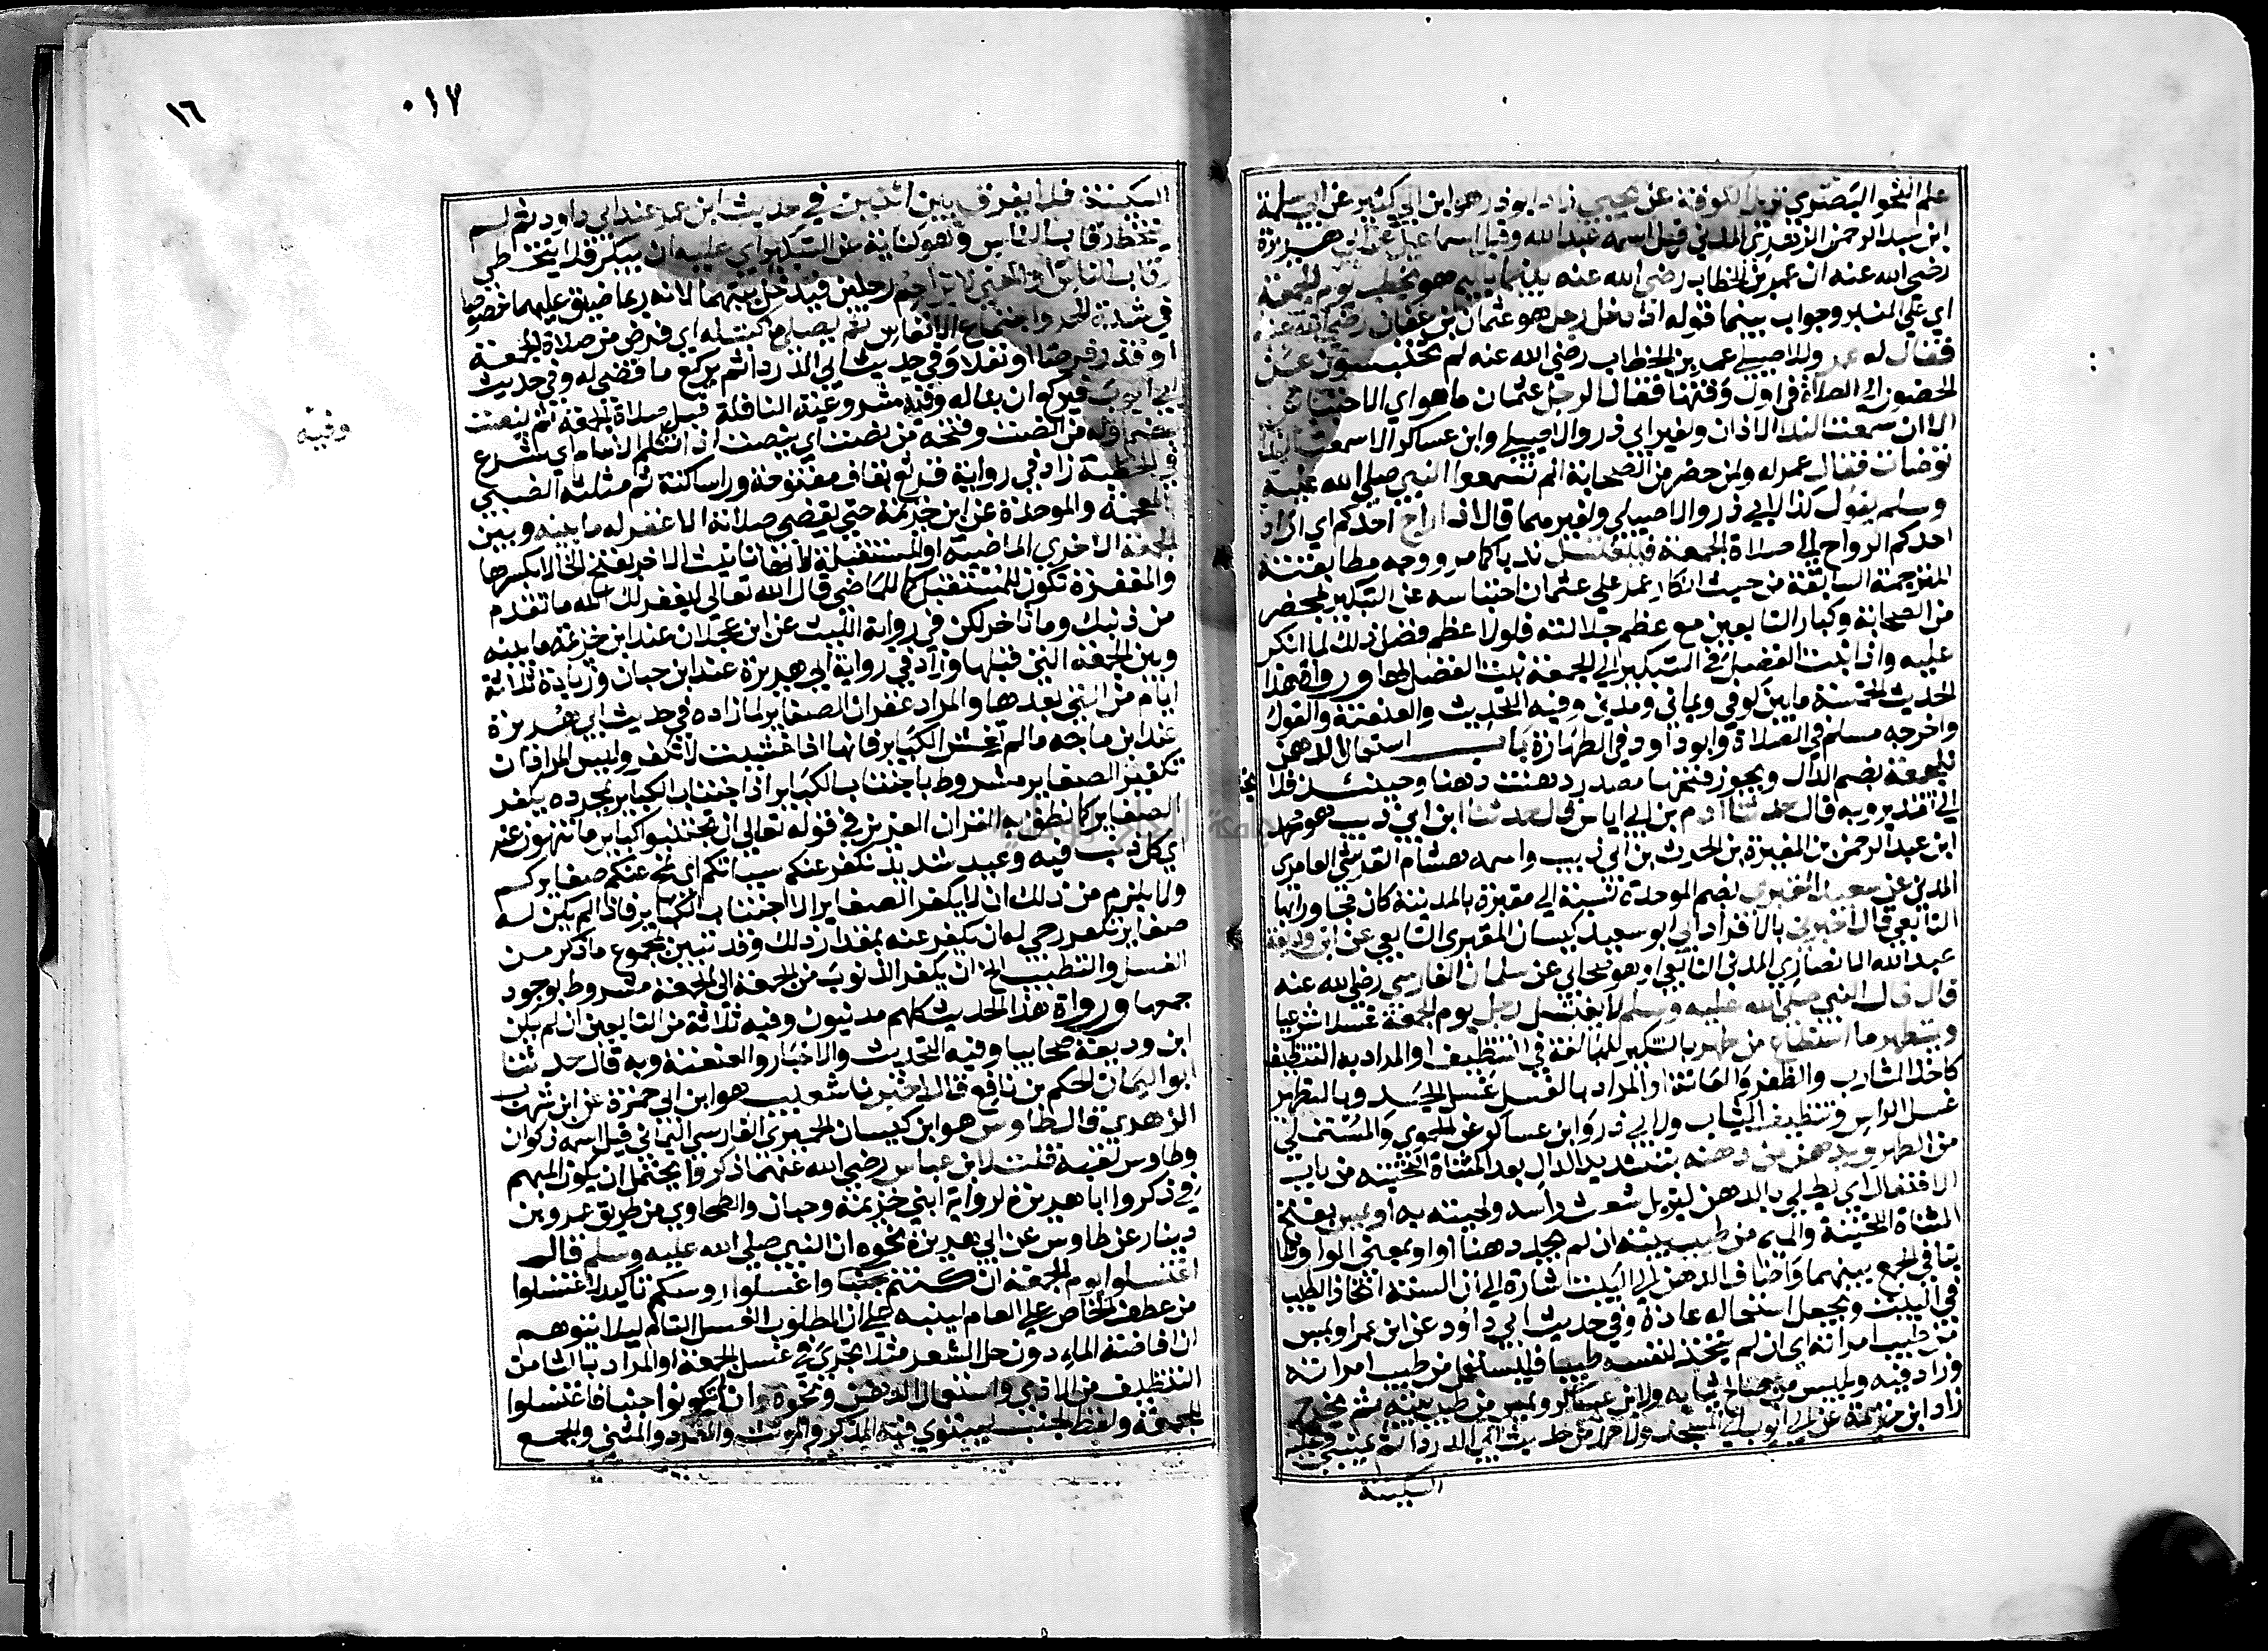 علم النحو البصري نزيل الكوفة عن يحيى زاد ابو ذر هو ابن ابي كثير عن ابي سلمة
ابن عبد الرحمن الزهري المدني قيل اسمه عبد الله وقيل اسماعيل عن ابي هريرة
رضي الله عنه ان عمر بن الخطاب رضي الله عنه بينما بالميم هو يخطب يوم الجمعة
اي على المنبر وجواب بينما قوله اذ دخل رجل هو عثمان بن عفان رضي الله عنه
فقال له عمر وللاصيلي عمر بن الخطاب رضي الله عنه لم تحتبسون عن
الحضور الى الصلاة في اول وقتها فقال الرجل عثمان ما هو اي الاحتباس
الا ان سمعت الندا الاذان ولغير ابي ذر والاصيلي وابن عساكر الا سمعت الندا
توضات فقال عمر له ولمن حضر من الصحابة الم تسمعوا النبي صلى الله عليه
وسلم يقول كذا لابي ذر والاصيلي ولغيرهما قال اذا راح احدكم اي اراد
احدكم الرواح الى صلاة الجمعة فليغتسل ندبا كما مر ووجه مطابقته
للترجمة السابقة من حيث انكار عمر على عثمان احتباسه عن التبكير بمحضر
من الصحابة وكبار التابعين مع عظم جلالته فلولا عظم فضل ذلك لما انكر
عليه واذا ثبت الفضل في التبكير الى الجمعة ثبت الفضل لها ورواة هذا
الحديث الخمسة ما بين كوفي ويماني ومدني وفيه التحديث والعنعنة والقول
واخرجه مسلم في الصلاة وابو داود في الطهارة باب استعمال الدهن
للجمعة بضم الدال ويجوز فتحها مصدر دهنت دهنا وحينئذ فلا يحتاج
الى تقدير وبه قال حدثنا ادم بن ابي اياس قال حدثنا ابن ابي ذيب هو محمد
ابن عبد الرحمن بن المغيرة بن الحرث بن ابي ذيب واسمه هشام القرشي العامري
المدني عن سعيد المقبري بضم الموحدة نسبة الى مقبرة بالمدينة كان مجاورا بها
التابعي قال اخبرني بالافراد ابي ابو سعيد كيسان المقبري التابعي عن ابن وديعة
عبد الله الانصاري المدني التابعي او هو صحابي عن سلمان الفارسي رضي الله عنه
قال قال النبي صلى الله عليه وسلم لا يغتسل رجل يوم الجمعة غسلا شرعيا
ويتطهر ما استطاع من طهر بالتنكير للمبالغة في التنظيف او المراد به التنظيف
كاخذ الشارب والظفر والعانة او المراد بالغسل غسل الجسد وبالتطهير
غسل الراس وتنظيف الثياب ولابي ذر وابن عساكر عن الحموي والمستملي
من الطهر ويدهن من دهنه بتشديد الدال بعد المثناة التحتية من باب
الافتعال اي يطلي بالدهن ليزيل شعث راسه ولحيته به او يمس بفتح
المثناة التحتية والميم من طيب بيته ان لم يجد دهنا او او بمعنى الواو فلا
ينافي الجمع بينهما واضاف الدهن الى البيت اشارة الى ان السنة اتخاذ الطيب
في البيت ويجعل استعماله عادة وفي حديث ابي داود عن ابن عمر او يمس
من طيب امراته اي ان لم يتخذ لنفسه طيبا فليستعمل من طيب امراته
وزاد فيه ويلبس من صالح ثيابه ولابن عساكر ويمس من طيب بيته ثم يخرج
زاد ابن خزيمة عن ابي ايوب الى المسجد ولاحمد من حديث ابي الدردا ثم يمشي وعليه
السكينة
٠١٧
١٦
السكينة فلا يفرق بين اثنين في حديث ابن عمر عند ابي داود ثم لم
يتخط رقاب الناس وهو كناية عن التبكير اي عليه ان يبكر فلا يتخطى
رقاب الناس او المعنى لا يزاحم رجلين فيدخل بينهما لانه ربما ضيق عليهما خصوصا
في شدة الحر واجتماع الانفاس ثم يصلي ما كتب له اي فرض من صلاة الجمعة
او قدر فرضا او نفلا وفي حديث ابي الدردا ثم يركع ما قضي له وفي حديث
ابي ايوب فيركع ان بدا له وفيه مشروعية النافلة قبل صلاة الجمعة ثم ينصت
بضم اوله من انصت وفتحه من نصت اي ينصت اذا تكلم الامام اي شرع
في الخطبة زاد في رواية قرثع بقاف مفتوحة ورا ساكنة ثم مثلثة الضبي
بالمعجمة والموحدة عن ابن خزيمة حتى يقضي صلاته الا غفر له ما بينه وبين
الجمعة الاخرى الماضية او المستقبلة لانها تانيث الاخر بفتح الخا لا بكسرها
والمغفرة تكون للمستقبل كما للماضي قال الله تعالى ليغفر لك الله ما تقدم
من ذنبك وما تاخر لكن في رواية الليث عن ابن عجلان عند ابن خزيمة ما بينه
وبين الجمعة التي قبلها وزاد في رواية ابي هريرة عند ابن حبان وزيادة ثلاثة
ايام من التي بعدها والمراد غفران الصغاير لما زاده في حديث ابي هريرة
عند ابن ماجه ما لم تغش الكباير فانها اذا غشيت لا تكفر وليس المراد ان
تكفير الصغاير مشروط باجتناب الكباير اذ اجتناب الكباير بمجرده يكفر
الصغاير كما نطق به القران العزيز في قوله تعالى ان تجتنبوا كباير ما تنهون عنه
اي كل ذنب فيه وعيد شديد نكفر عنكم سيياتكم اي نمح عنكم صغايركم
ولا يلزم من ذلك ان لا يكفر الصغاير الا اجتناب الكباير فاذا لم يكن له
صغاير تكفر رجي له ان يكفر عنه بمقدار ذلك وقد تبين بمجموع ما ذكر من
الغسل والتطيب الخ ان يكفر الذنوب من الجمعة الى الجمعة مشروط بوجود
جمعها ورواة هذا الحديث كلهم مدنيون وفيه ثلاثة من التابعين ان لم يكن
ابن وديعة صحابيا وفيه التحديث والاخبار والعنعنة وبه قال حدثنا
ابو اليمان الحكم بن نافع قال اخبرنا شعيب هو ابن ابي حمزة عن ابن شهاب
الزهري قال طاوس هو ابن كيسان الحميري الفارسي اليماني قيل اسمه ذكوان
وطاوس لقبه قلت لابن عباس رضي الله عنهما ذكروا يحتمل ان يكون المبهم
في ذكروا ابا هريرة لرواية ابني خزيمة وحبان والطحاوي من طريق عمرو بن
دينار عن طاوس عن ابي هريرة نحوه ان النبي صلى الله عليه وسلم قال
اغتسلوا يوم الجمعة ان كنتم جنبا واغسلوا روسكم تاكيد لاغتسلوا
من عطف الخاص على العام لينبه على ان المطلوب الغسل التام ليلا يتوهم
ان افاضة الماء دون حل الشعر مثلا يجزي في غسل الجمعة او المراد بالثامن
التنظيف من الاذى واستعمال الدهن ونحوه وان لم تكونوا جنبا فاغتسلوا
للجمعة ولفظ الجنب يستوي فيه المذكر والمونث والمفرد والمثنى والجمع
وفيه